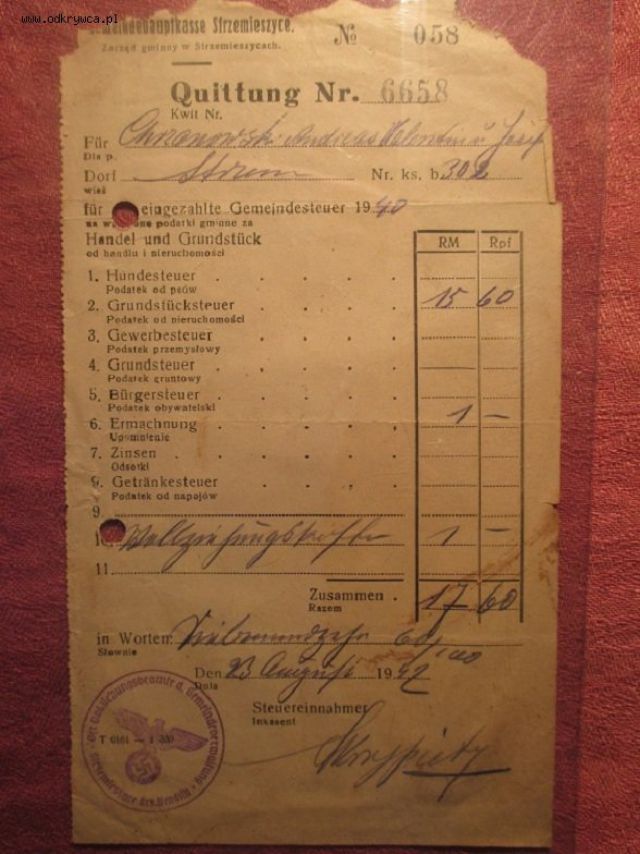 www.odkrywca.pl
Gemeindehauptkasse Strzemieszyce. № 058
Zarząd gminny w Strzemieszycach.
Quittung Nr. 6658
Kwit Nr.
Für Chrzanowski Andreas Valentin u Josef
Dla p.
Dorf Strzem Nr. ks. b. 302
wieś
für eingezahlte Gemeindesteuer 1940
podatki gminne za
Handel und Grundstück RM Rpf
od handlu i nieruchomości
1. Hundesteuer
Podatek od psów
2. Grundstücksteuer 15 60
Podatek od nieruchomości
3. Gewerbesteuer
Podatek przemysłowy
4. Grundsteuer
Podatek gruntowy
5. Bürgersteuer
Podatek obywatelski
6. Ermachnung 1 —
Upomnienie
7. Zinsen
Odsetki
9. Getränkesteuer
Podatek od napojów
9.
Vollziehungskosten 1 —
11.
Zusammen 17 60
Razem
in Worten: Siebenundzehn 60/100
Słownie
Den 23 August 1942
Data
Steuereinnahmer
Inkasent
T 0161